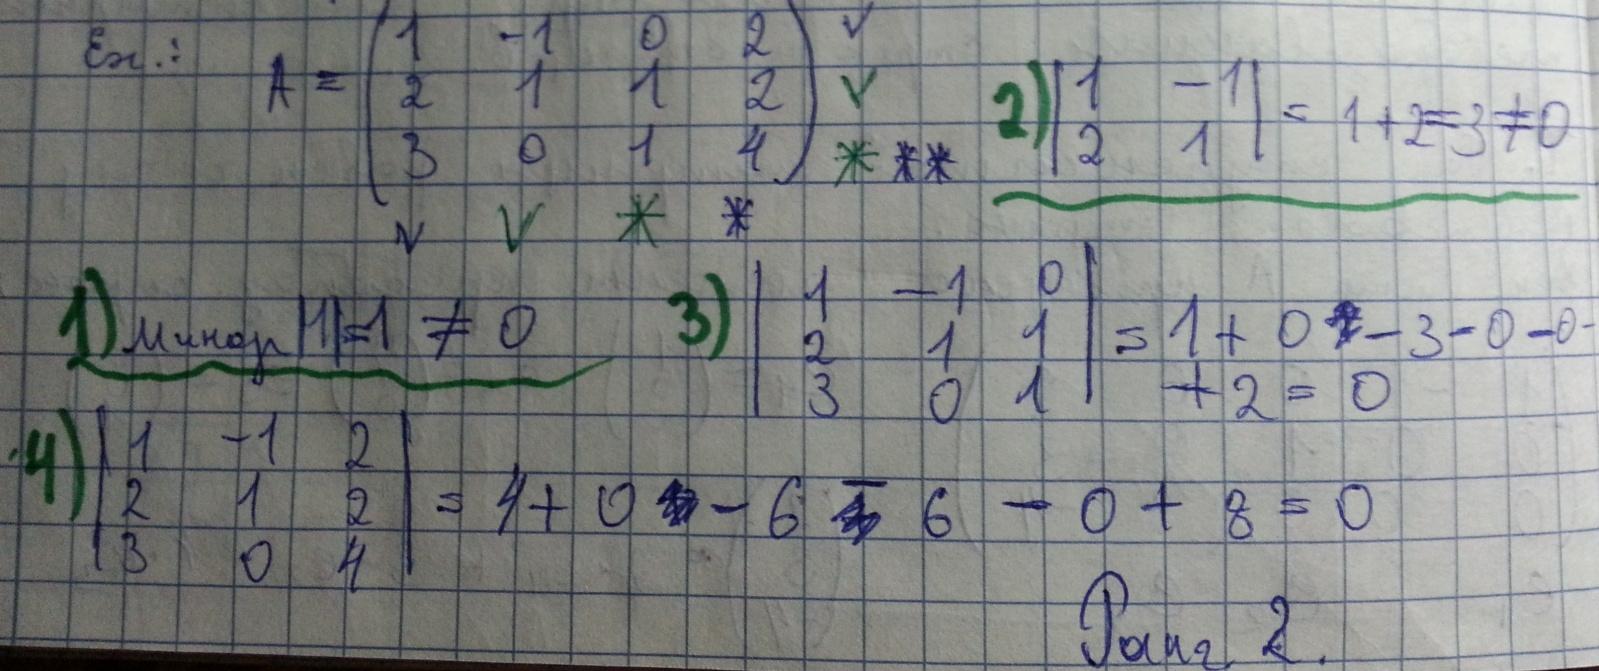 Ex.:
A = (1 -1 0 2) v
(2 1 1 2) v
(3 0 1 4) * **
v v * *
2) |1 -1|
|2 1| = 1+2=3≠0
1) Минор |1|=1 ≠ 0
3) |1 -1 0|
|2 1 1| = 1 + 0 - 3 - 0 - 0 -
|3 0 1| + 2 = 0
4) |1 -1 2|
|2 1 2| = 4 + 0 - 6 - 6 - 0 + 8 = 0
|3 0 4|
Ранг 2.